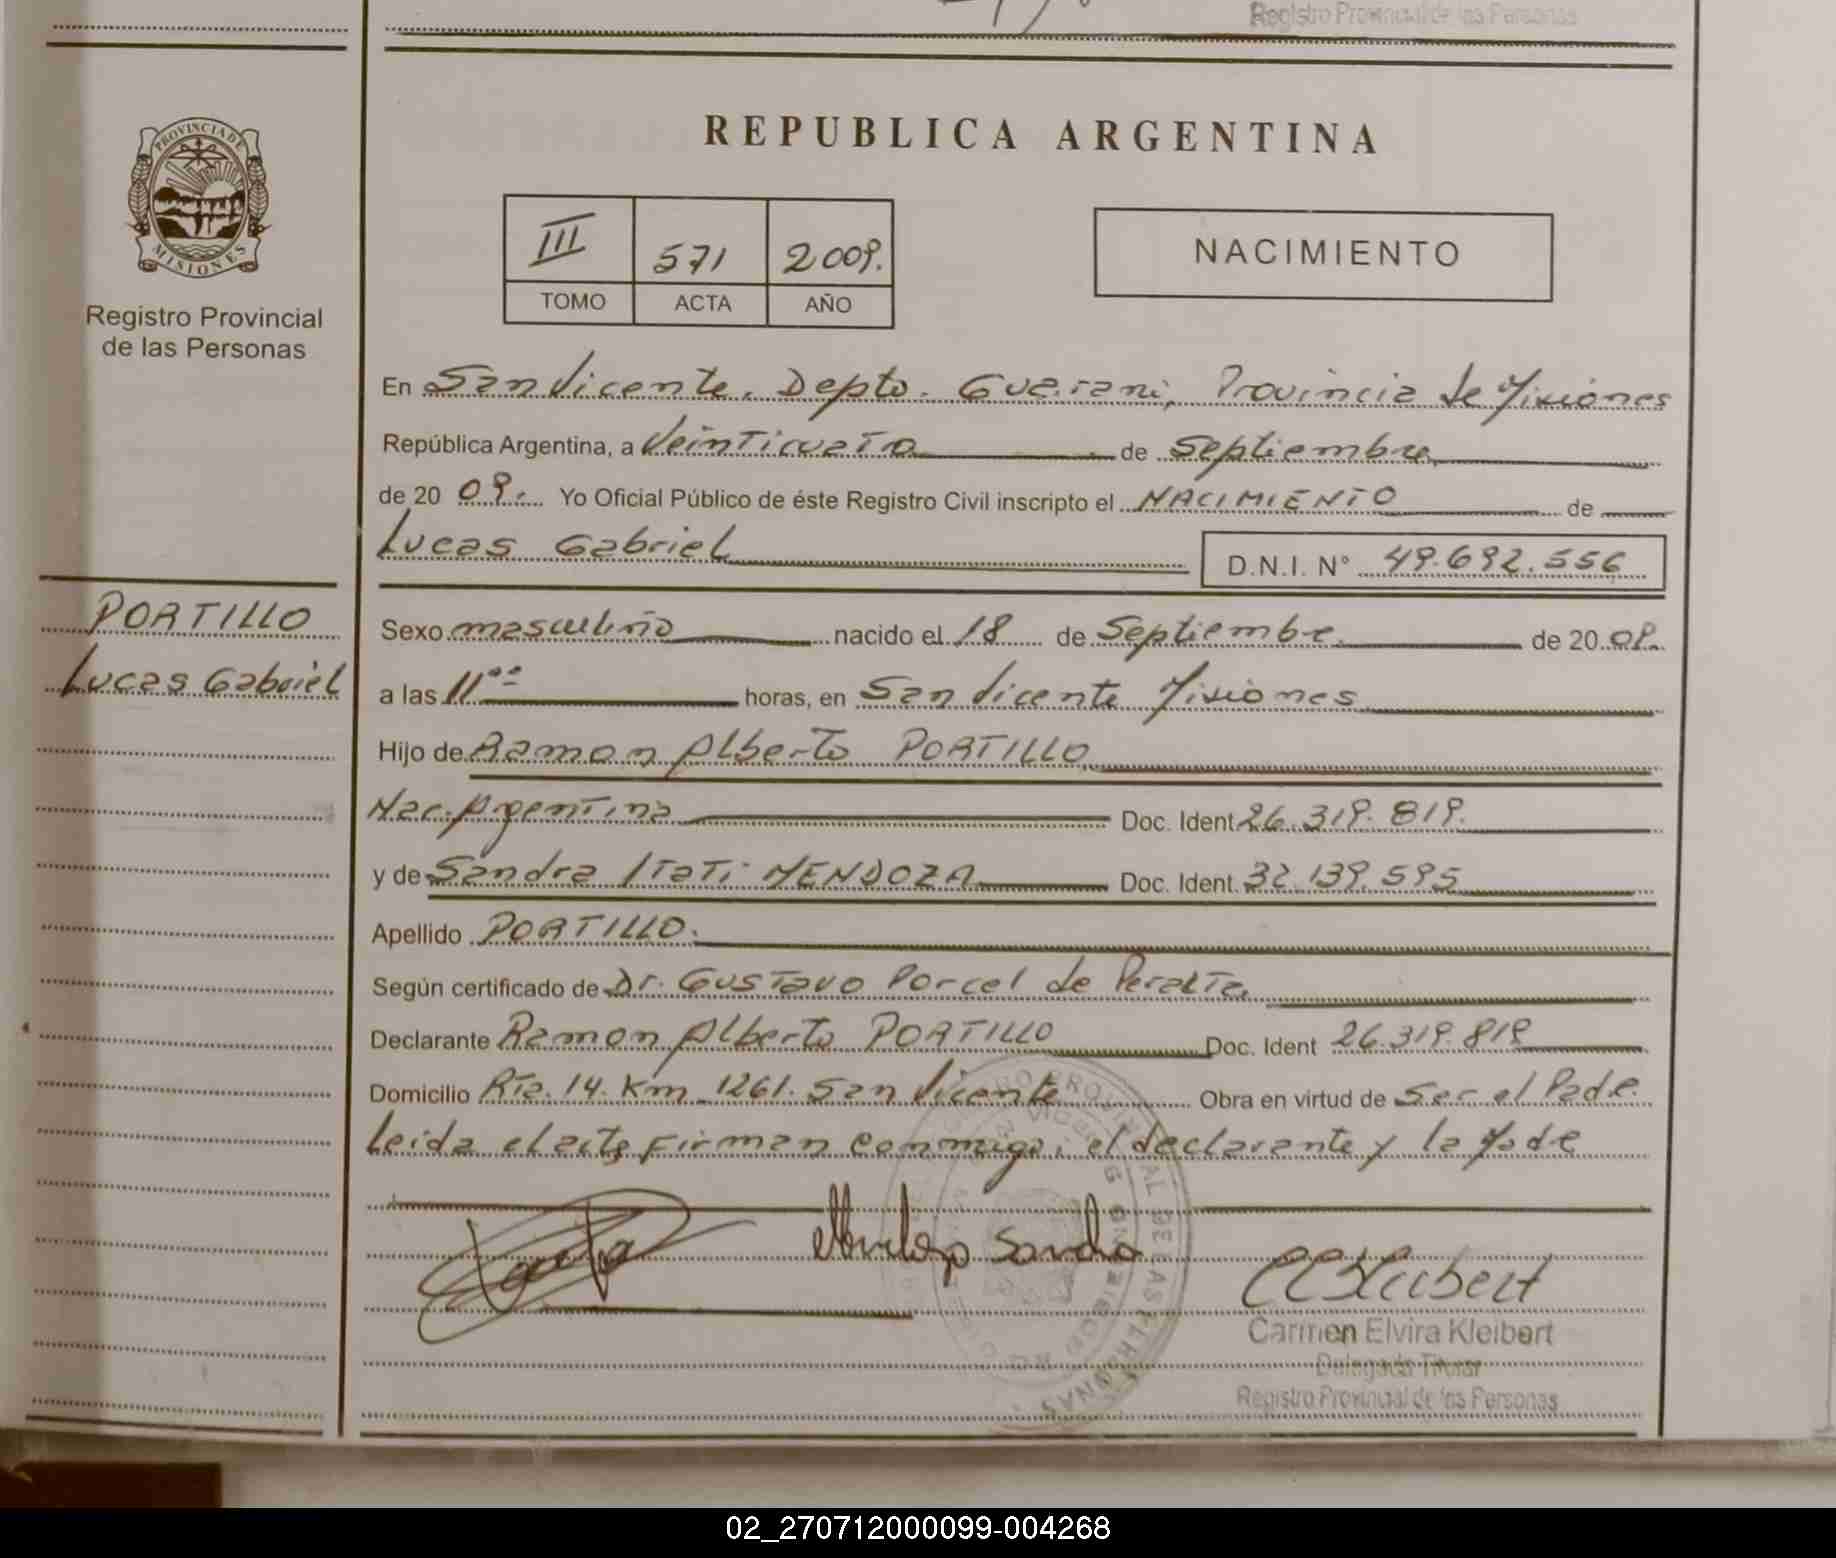 Registro Provincial de las Personas
PROVINCIA DE
MISIONES
Registro Provincial
de las Personas
REPUBLICA ARGENTINA
III 571 2009.
TOMO ACTA AÑO
NACIMIENTO
En San Vicente, Depto. Guarani, Provincia de Misiones
República Argentina, a Veinticuato de Septiembre
de 20 09. Yo Oficial Público de éste Registro Civil inscripto el NACIMIENTO de
Lucas Gabriel D.N.I. N° 49.692.556
PORTILLO
Lucas Gabriel
Sexo masculino nacido el 18 de Septiembre de 20 09.
a las 11⁰⁰ horas, en San Vicente Misiones
Hijo de Ramon Alberto PORTILLO
Nac. Argentina Doc. Ident 26.319.819.
y de Sandra Itati MENDOZA Doc. Ident. 32.139.595
Apellido PORTILLO.
Según certificado de Dr. Gustavo Porcel de Peralta,
Declarante Ramon Alberto PORTILLO Doc. Ident 26.319.819
Domicilio Rta. 14. Km 1261. San Vicente Obra en virtud de Ser el Padre.
Leida el acta, firman conmigo, el declarante y la Madre
Mendoza Sandra
CEKleibert
Carmen Elvira Kleibert
Delegada Titular
Registro Provincial de las Personas
02_270712000099-004268